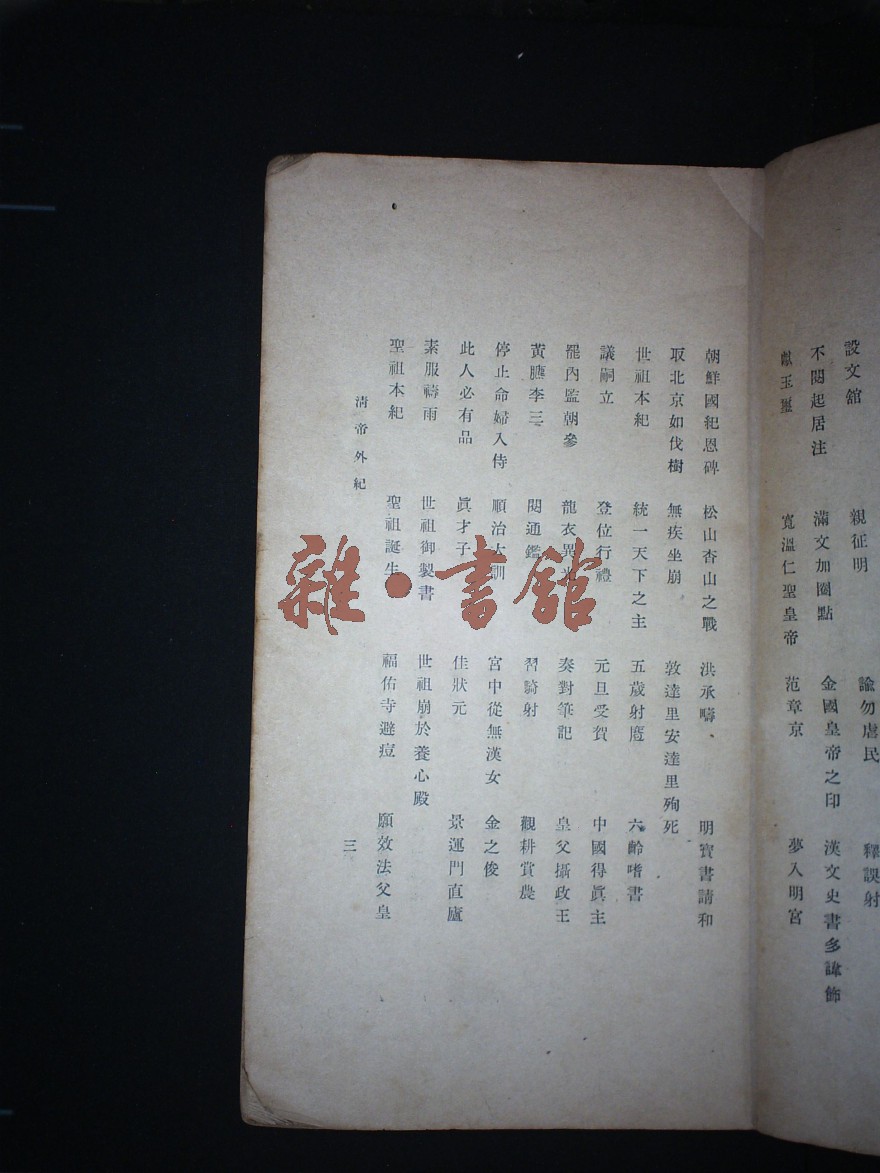 設文館 親征明 諭勿虐民 釋誤射
不閱起居注 滿文加圈點 金國皇帝之印 漢文史書多諱飾
獻玉璽 寬溫仁聖皇帝 范章京 夢入明宮
朝鮮國紀恩碑 松山杏山之戰 洪承疇、 明寶書請和
取北京如伐樹 無疾坐崩 敦達里安達里殉死
世祖本紀 統一天下之主 五歲射麅 六齡嗜書
議嗣立 登位行禮 元旦受賀 中國得眞主
罷內監朝參 龍衣異 奏對筆記 皇父攝政王
黃膘李三 閱通鑑 習騎射 觀耕賞農
停止命婦入侍 順治大訓 宮中從無漢女 金之俊
此人必有品 眞才子 佳狀元 景運門直廬
素服禱雨 世祖御製書 世祖崩於養心殿
聖祖本紀 聖祖誕生 福佑寺避痘 願效法父皇
清帝外紀 三
雜·書館